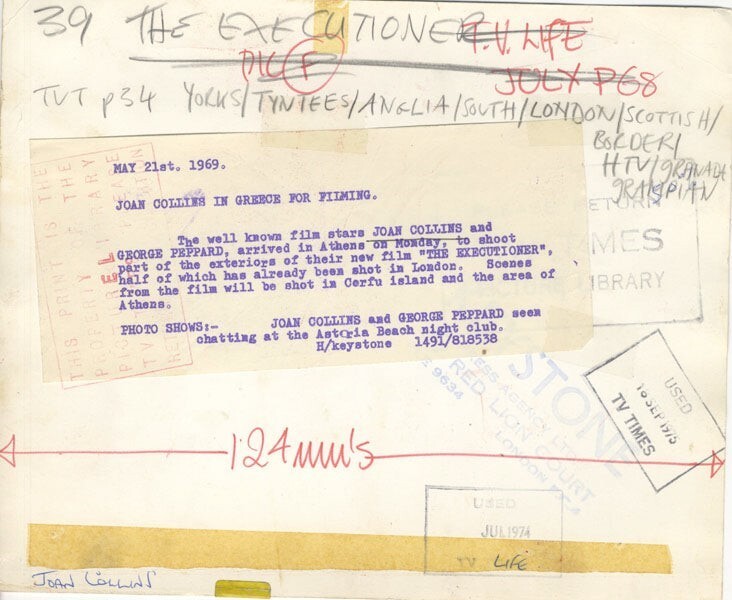 39 THE EXECUTIONER T.V. LIFE
PIC F JULY P68
TVT p34 YORKS/TYNTEES/ANGLIA/SOUTH/LONDON/SCOTTISH/
BORDER/
HTV/GRANADA
GRAMPIAN
MAY 21st. 1969.
JOAN COLLINS IN GREECE FOR FILMING.
The well known film stars JOAN COLLINS and
GEORGE PEPPARD, arrived in Athens on Monday, to shoot
part of the exteriors of their new film "THE EXECUTIONER",
half of which has already been shot in London. Scenes
from the film will be shot in Cerfu island and the area of
Athens.
PHOTO SHOWS:- JOAN COLLINS and GEORGE PEPPARD seen
chatting at the Astoria Beach night club.
H/keystone 1491/818538
THIS PRINT IS THE
PROPERTY OF THE
LIBRARY
MES
IBRARY
STONE
ESS AGENCY LTD
RED LION COURT
LONDON E.C.4
9634
USED
16 SEP 1975
TV TIMES
124mm's
USED
JUL 1974
TV LIFE
JOAN COLLINS